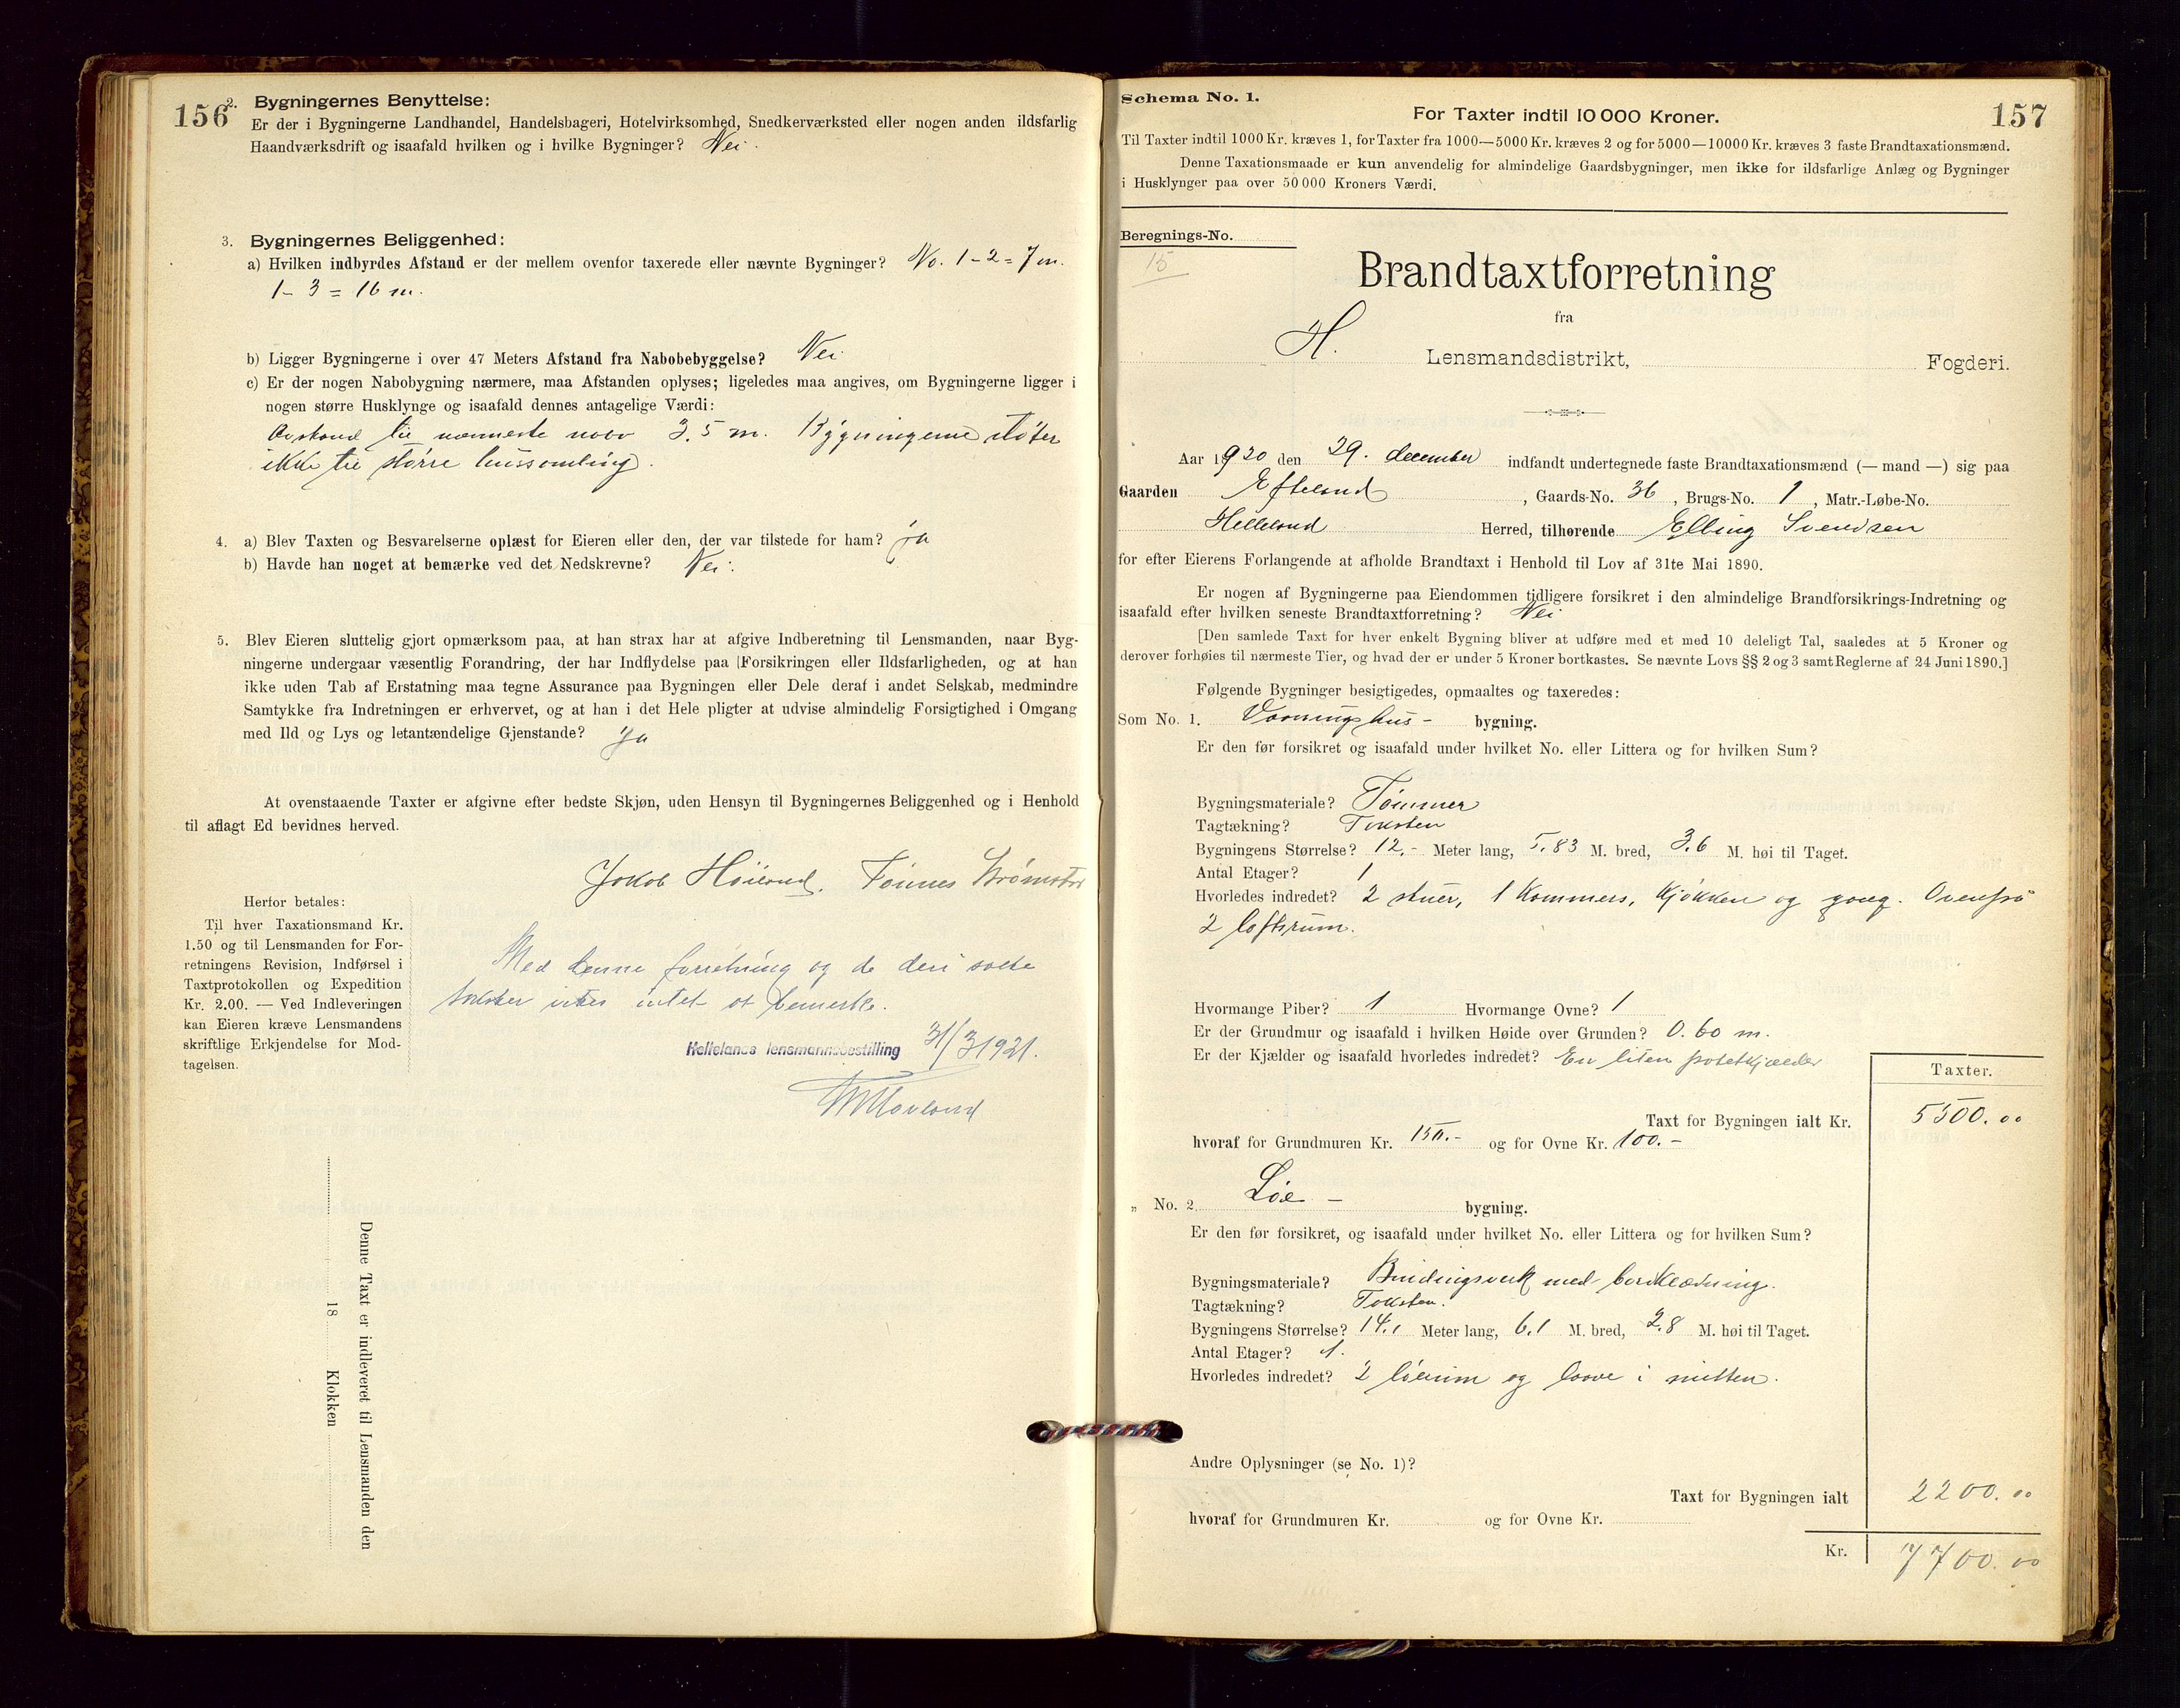 156
2. Bygningernes Benyttelse:
Er der i Bygningerne Landhandel, Handelsbageri, Hotelvirksomhed, Snedkerværksted eller nogen anden ildsfarlig
Haandværksdrift og isaafald hvilken og i hvilke Bygninger? Nei.
3. Bygningernes Beliggenhed:
a) Hvilken indbyrdes Afstand er der mellem ovenfor taxerede eller nævnte Bygninger? No. 1 - 2 = 7 m.
1 - 3 = 16 m.
b) Ligger Bygningerne i over 47 Meters Afstand fra Nabobebyggelse? Nei
c) Er der nogen Nabobygning nærmere, maa Afstanden oplyses; ligeledes maa angives, om Bygningerne ligger i
nogen større Husklynge og isaafald dennes antagelige Værdi:
Avstand til nærmeste nabo 3.5 m. Bygningerne støter
ikke til større hussamling.
4. a) Blev Taxten og Besvarelserne oplæst for Eieren eller den, der var tilstede for ham? ja
b) Havde han noget at bemærke ved det Nedskrevne? Nei.
5. Blev Eieren sluttelig gjort opmærksom paa, at han strax har at afgive Indberetning til Lensmanden, naar Byg-
ningerne undergaar væsentlig Forandring, der har Indflydelse paa Forsikringen eller Ildsfarligheden, og at han
ikke uden Tab af Erstatning maa tegne Assurance paa Bygningen eller Dele deraf i andet Selskab, medmindre
Samtykke fra Indretningen er erhvervet, og at han i det Hele pligter at udvise almindelig Forsigtighed i Omgang
med Ild og Lys og letantændelige Gjenstande? Ja
At ovenstaaende Taxter er afgivne efter bedste Skjøn, uden Hensyn til Bygningernes Beliggenhed og i Henhold
til aflagt Ed bevidnes herved.
Jakob Høiland. Tønnes
Herfor betales:
Til hver Taxationsmand Kr.
1.50 og til Lensmanden for For-
retningens Revision, Indførsel i
Taxtprotokollen og Expedition
Kr. 2.00. — Ved Indleveringen
kan Eieren kræve Lensmandens
skriftlige Erkjendelse for Mod-
tagelsen.
Med denne forretning og de deri satte
takster intet at bemerke.
Hellelands lensmannsbestilling 31/3 1921.
Denne Taxt er indleveret til Lensmanden den
18 Klokken
Schema No. 1.
157
For Taxter indtil 10 000 Kroner.
Til Taxter indtil 1000 Kr. kræves 1, for Taxter fra 1000—5000 Kr. kræves 2 og for 5000—10000 Kr. kræves 3 faste Brandtaxationsmænd.
Denne Taxationsmaade er kun anvendelig for almindelige Gaardsbygninger, men ikke for ildsfarlige Anlæg og Bygninger
i Husklynger paa over 50 000 Kroners Værdi.
Beregnings-No.
15
Brandtaxtforretning
fra
H. Lensmandsdistrikt, Fogderi.
Aar 1920 den 29. december indfandt undertegnede faste Brandtaxationsmænd (— mand —) sig paa
Gaarden Efteland, Gaards-No. 36, Brugs-No. 1, Matr.-Løbe-No.
Helleland Herred, tilhørende Elling Svendsen
for efter Eierens Forlangende at afholde Brandtaxt i Henhold til Lov af 31te Mai 1890.
Er nogen af Bygningerne paa Eiendommen tidligere forsikret i den almindelige Brandforsikrings-Indretning og
isaafald efter hvilken seneste Brandtaxtforretning? Nei
[Den samlede Taxt for hver enkelt Bygning bliver at udføre med et med 10 deleligt Tal, saaledes at 5 Kroner og
derover forhøies til nærmeste Tier, og hvad der er under 5 Kroner bortkastes. Se nævnte Lovs §§ 2 og 3 samt Reglerne af 24 Juni 1890.]
Følgende Bygninger besigtigedes, opmaaltes og taxeredes:
Som No. 1. Vaaningshus - bygning.
Er den før forsikret og isaafald under hvilket No. eller Littera og for hvilken Sum?
Bygningsmateriale? Tømmer
Tagtækning? Taksten
Bygningens Størrelse? 12.- Meter lang, 5.83 M. bred, 3.6 M. høi til Taget.
Antal Etager? 1
Hvorledes indredet? 2 stuer, 1 kammers, kjøkken og gang. Ovenpå
2 loftsrum.
Hvormange Piber? 1 Hvormange Ovne? 1
Er der Grundmur og isaafald i hvilken Høide over Grunden? 0.60 m.
Er der Kjælder og isaafald hvorledes indredet? En liten potetkjælder
Taxter.
Taxt for Bygningen ialt Kr. 5500.00
hvoraf for Grundmuren Kr. 150.- og for Ovne Kr. 100.-
" No. 2 Løe - bygning.
Er den før forsikret, og isaafald under hvilket No. eller Littera og for hvilken Sum?
Bygningsmateriale? Bindingsverk med bordklædning.
Tagtækning? Taksten.
Bygningens Størrelse? 14.1 Meter lang, 6.1 M. bred, 2.8 M. høi til Taget.
Antal Etager? 1.
Hvorledes indredet? 2 løerum og laave i mitten.
Andre Oplysninger (se No. 1)?
Taxt for Bygningen ialt 2200.00
hvoraf for Grundmuren Kr. og for Ovne Kr.
Kr. 7700.00